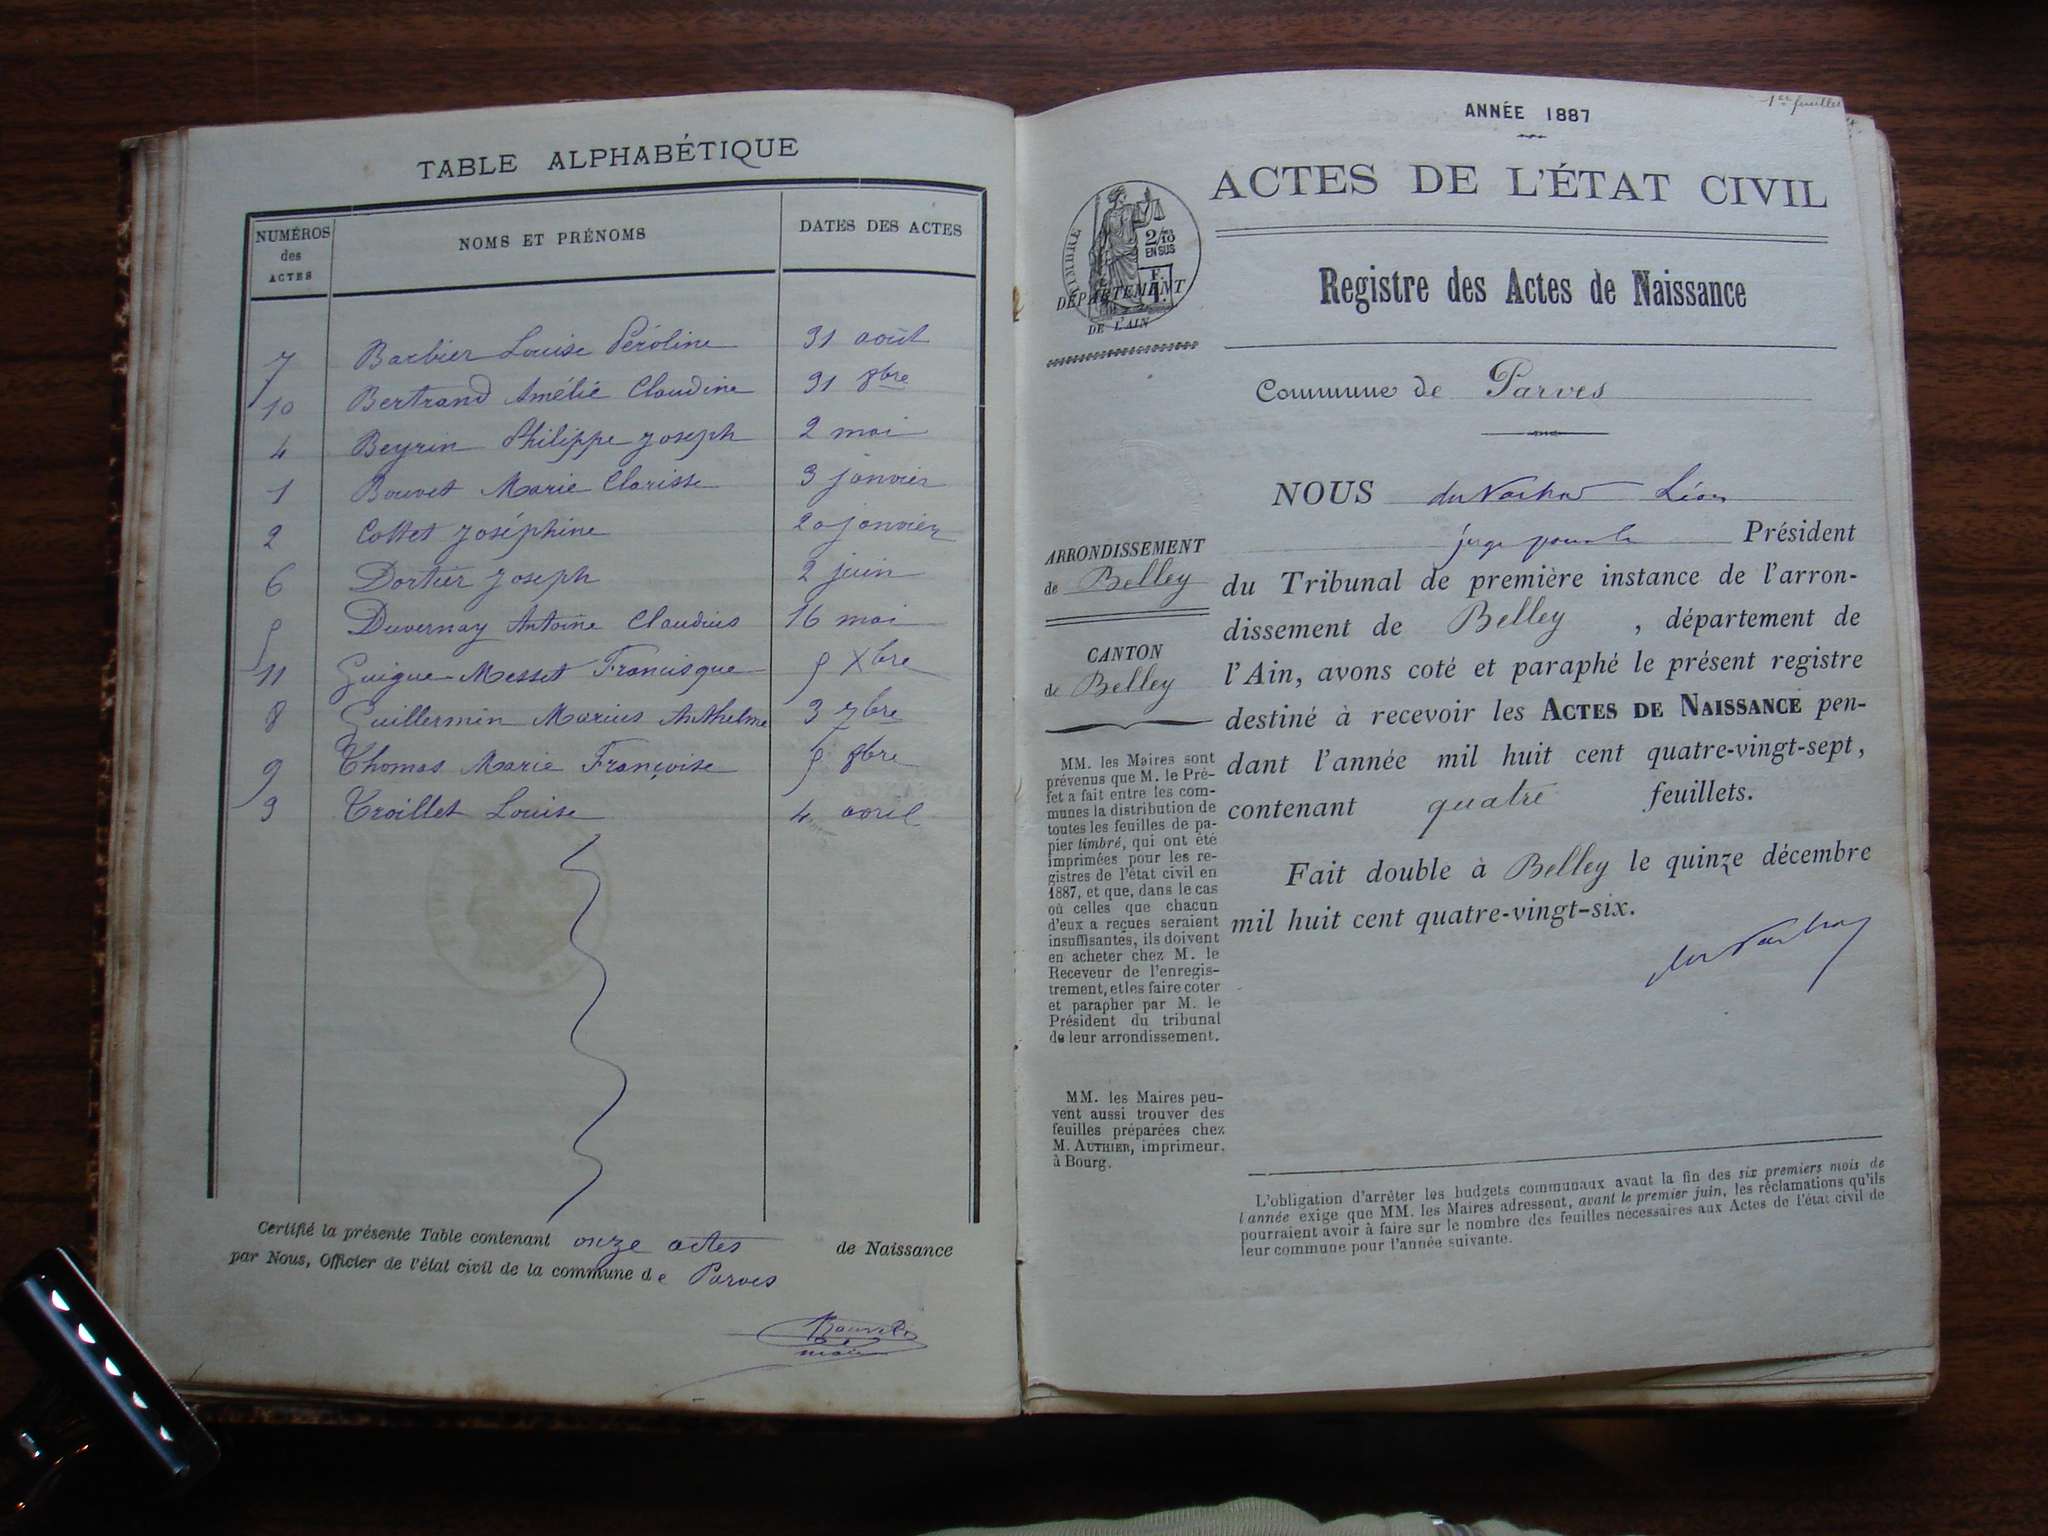 TABLE ALPHABÉTIQUE
NUMÉROS des ACTES NOMS ET PRÉNOMS DATES DES ACTES
7 Barbier Louise Péroline 31 août
10 Bertrand Amélie Claudine 31 8bre
4 Beyrin Philippe Joseph 2 mai
1 Bouvet Marie Clarisse 3 janvier
2 Cottet Joséphine 20 janvier
6 Dortier Joseph 2 juin
5 Duvernay Antoine Claudius 16 mai
11 Guigue Messet Francisque 5 Xbre
8 Guillermin Marius Anthelme 3 7bre
9 Thomas Marie Françoise 5 8bre
3 Troillet Louise 4 avril
Certifié la présente Table contenant onze actes de Naissance
par Nous, Officier de l'état civil de la commune de Parves
1er feuillet
ANNÉE 1887
ACTES DE L'ÉTAT CIVIL
TIMBRE
2/10
EN SUS
DÉPARTEMENT
DE L'AIN
Registre des Actes de Naissance
Commune de Parves
ARRONDISSEMENT
de Belley
CANTON
de Belley
MM. les Maires sont
prévenus que M. le Pré-
fet a fait entre les com-
munes la distribution de
toutes les feuilles de pa-
pier timbré, qui ont été
imprimées pour les re-
gistres de l'état civil en
1887, et que, dans le cas
où celles que chacun
d'eux a reçues seraient
insuffisantes, ils doivent
en acheter chez M. le
Receveur de l'enregis-
trement, et les faire coter
et parapher par M. le
Président du tribunal
de leur arrondissement.
MM. les Maires peu-
vent aussi trouver des
feuilles préparées chez
M. AUTHIER, imprimeur,
à Bourg.
NOUS Léon
Président
du Tribunal de première instance de l'arron-
dissement de Belley, département de
l'Ain, avons coté et paraphé le présent registre
destiné à recevoir les ACTES DE NAISSANCE pen-
dant l'année mil huit cent quatre-vingt-sept,
contenant quatre feuillets.
Fait double à Belley le quinze décembre
mil huit cent quatre-vingt-six.
L'obligation d'arrêter les budgets communaux avant la fin des six premiers mois de
l'année exige que MM. les Maires adressent, avant le premier juin, les réclamations qu'ils
pourraient avoir à faire sur le nombre des feuilles nécessaires aux Actes de l'état civil de
leur commune pour l'année suivante.